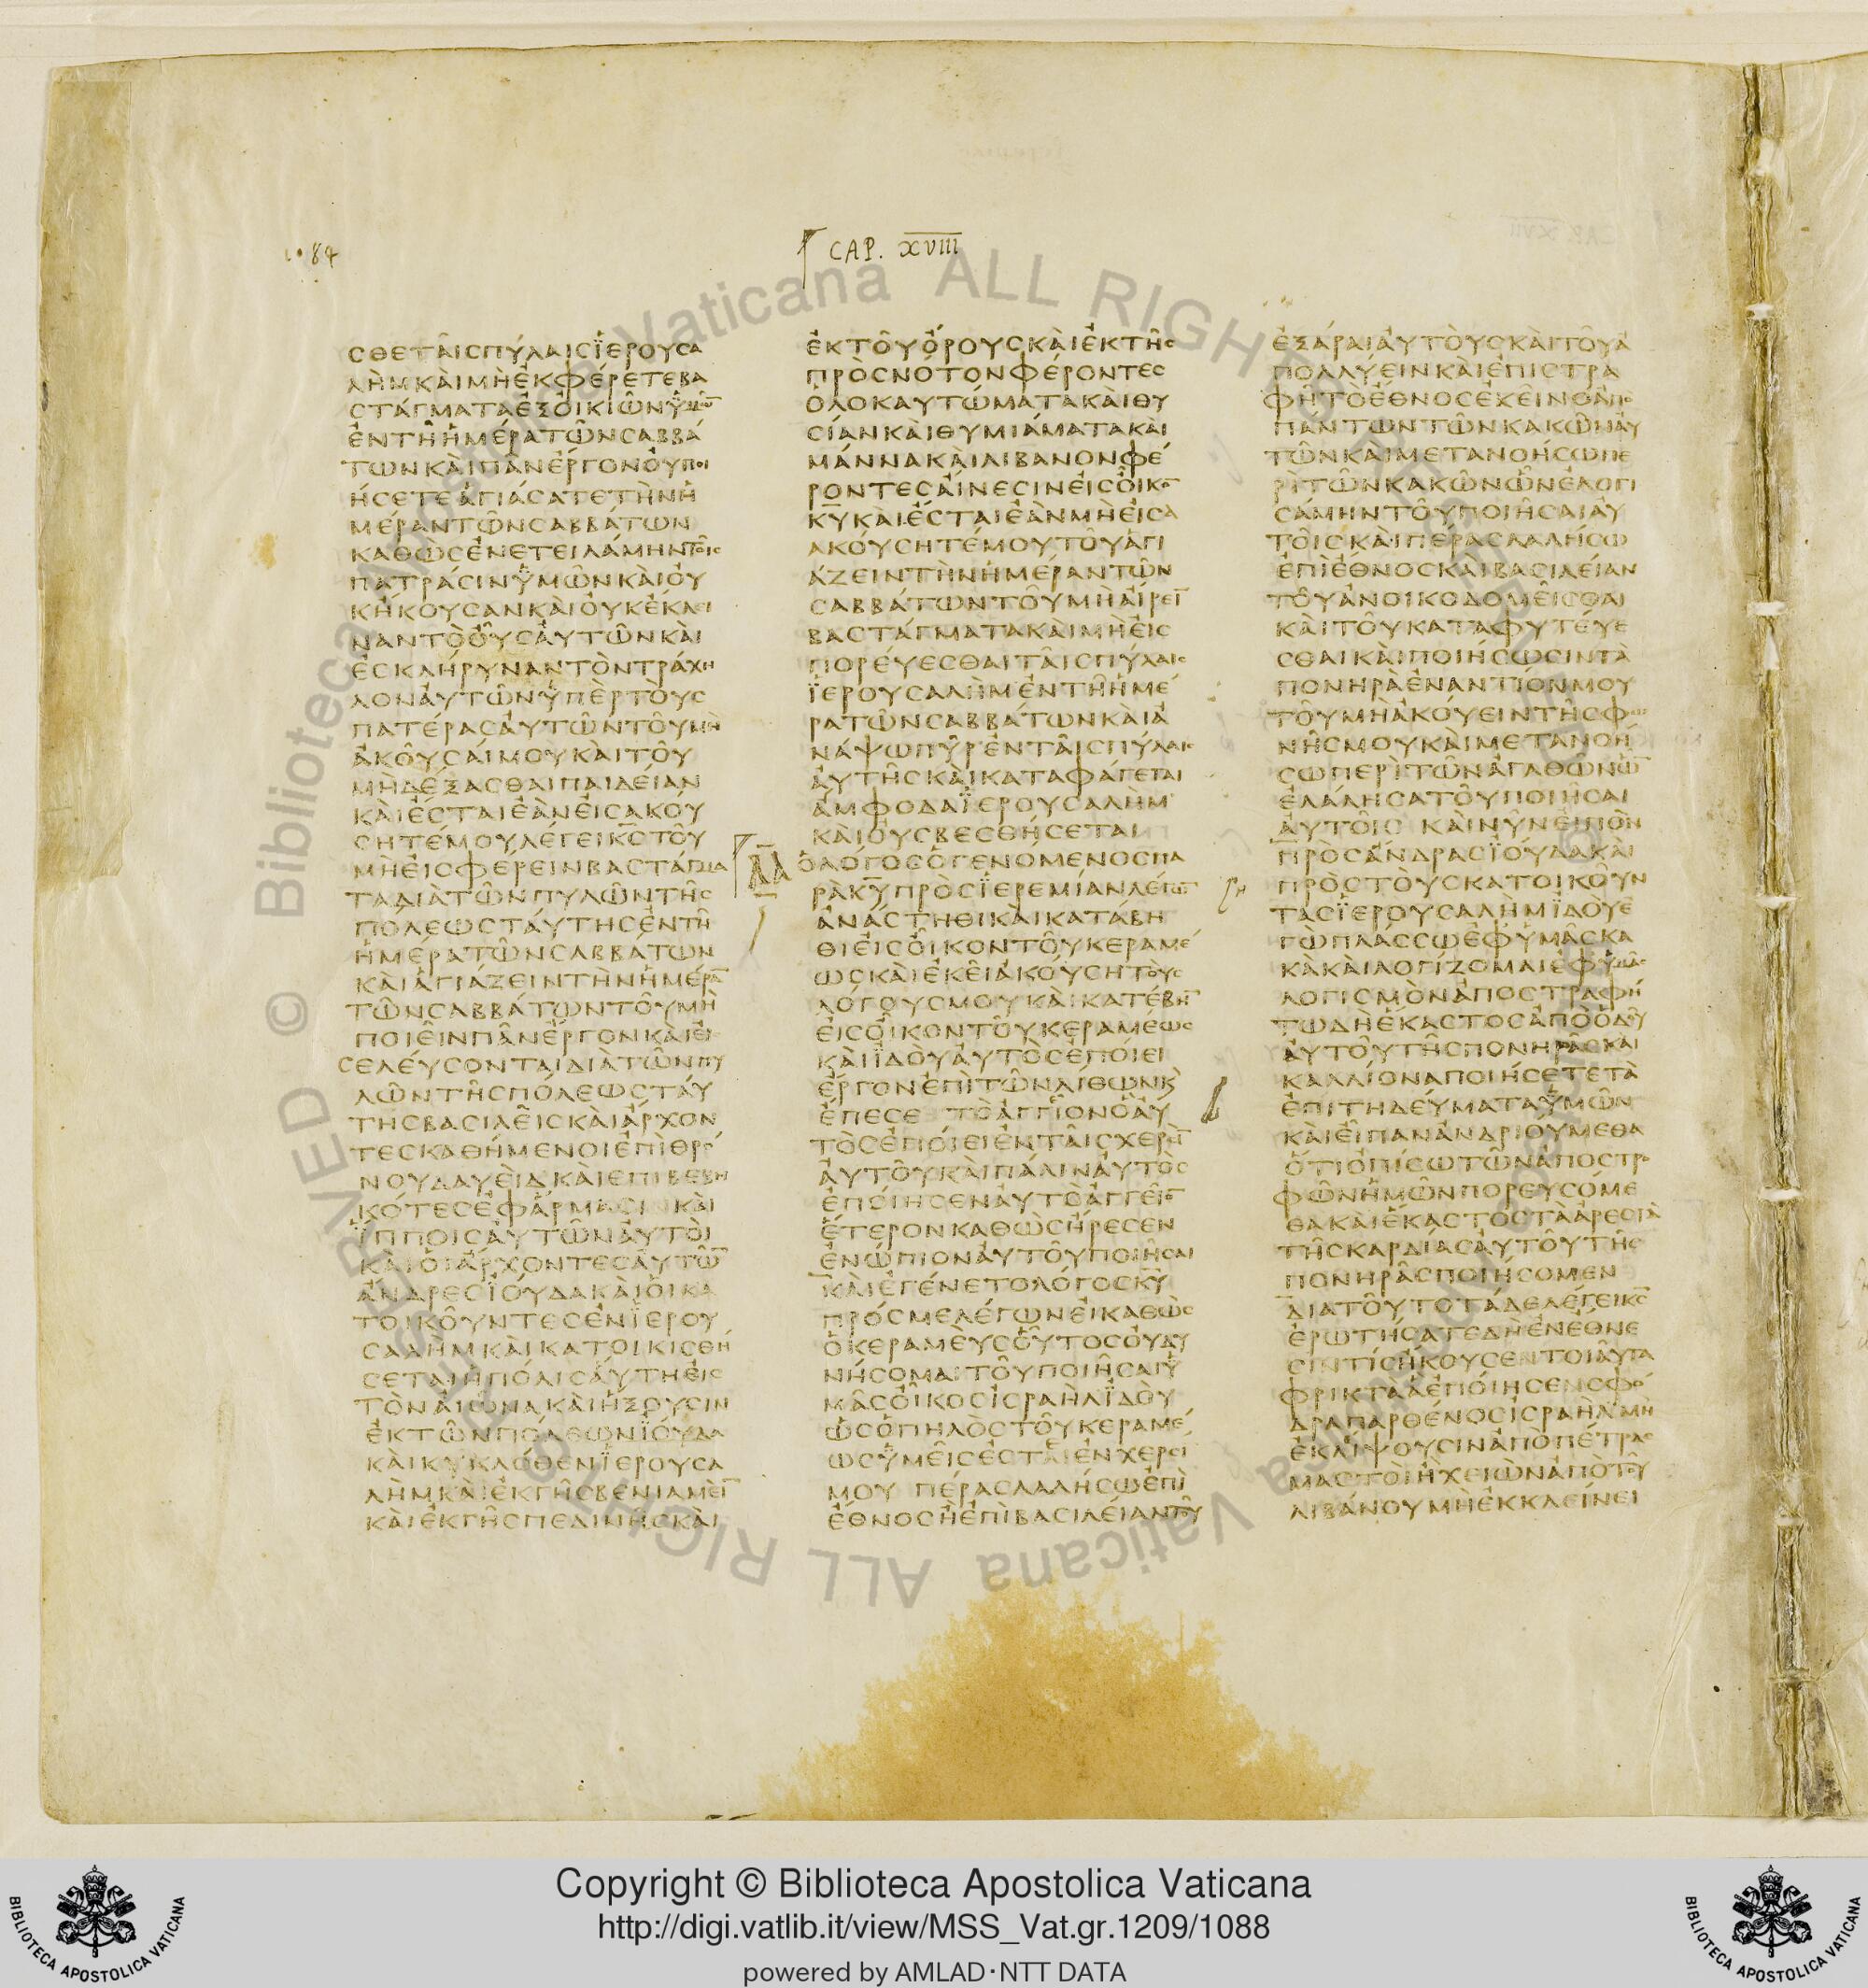 1084
CAP. XVIII
ϲθεταῖϲπύλαιϲϊερουϲα
λὴμκαὶμὴἐκφέρετεβα
ϲτάγματαἐξοἰκιῶνὑμῶ̅
ἐντῇἡμέρατῶνϲαββά
τωνκαὶπᾶνἔργονοὐποι
ήϲετεἁγιάϲατετὴνἡ
μέραντῶνϲαββάτων
καθὼϲἐνετειλάμηντοῖϲ
πατράϲινὑμῶνκαὶοὐ
κἤκουϲανκαὶοὐκἔκλει
ναντὸοὖϲαὐτῶνκαὶ
ἐϲκλήρυναντὸντράχη
λοναὐτῶνὑπὲρτοὺϲ
πατέραϲαὐτῶντοῦμὴ
ἀκοῦϲαίμουκαὶτοῦ
μὴδέξαϲθαιπαιδείαν
καὶἔϲταιἐὰνεἰϲακού
ϲητέμουλέγεικ̅ϲ̅τοῦ
μὴεἰϲφέρεινβαϲτάγμα
ταδιὰτῶνπυλῶντῆϲ
πόλεωϲταύτηϲἐντῇ
ἡμέρατῶνϲαββάτων
καὶἁγιάζειντὴνἡμέρα̅
τῶνϲαββάτωντοῦμὴ
ποιεῖνπᾶνἔργονκαὶεἰ
ϲελεύϲονταιδιὰτῶνπυ
λῶντῆϲπόλεωϲταύ
τηϲβαϲιλεῖϲκαὶἄρχον
τεϲκαθήμενοιἐπὶθρό
νουδαυεὶδκαὶἐπιβεβη
κότεϲἐφἅρμαϲινκαὶ
ἵπποιϲαὐτῶναὐτοὶ
καὶοἱἄρχοντεϲαὐτῶ̅
ἄνδρεϲϊούδακαὶοἱκα
τοικοῦντεϲἐνϊερου
ϲαλὴμκαὶκατοικιϲθή
ϲεταιἡπόλιϲαὕτηεἰϲ
τὸναἰῶνακαὶἥξουϲιν
ἐκτῶνπόλεωνϊούδα
καὶκυκλόθενϊερουϲα
λὴμκαὶἐκγῆϲβενιαμεί̅
καὶἐκγῆϲπεδινῆϲκαὶ
ἐκτοῦὄρουϲκαὶἐκτῆϲ
πρὸϲνότονφέροντεϲ
ὁλοκαυτώματακαὶθυ
ϲίανκαὶθυμιάματακαὶ
μάννακαὶλιβανονφέ
ροντεϲαἴνεϲινεἰϲοἶκο̅
κ̅υ̅καὶἔϲταιἐὰνμὴεἰϲα
ακούϲητέμουτοῦἁγι
άζειντὴνἡμέραντῶν
ϲαββάτωντοῦμὴαἴρει̅
βαϲτάγματακαὶμὴεἰϲ
πορεύεϲθαιταῖϲπύλαιϲ
ϊερουϲαλὴμἐντῇἡμέ
ρατῶνϲαββάτωνκαὶἀ
νάψωπῦρἐνταῖϲπύλαιϲ
αὐτῆϲκαὶκαταφάγεται
ἄμφοδαϊερουϲαλὴμ
καὶοὐϲβεϲθήϲεται
ὁλόγοϲὁγενόμενοϲπα
ρὰκ̅υ̅πρὸϲϊερεμίανλέγω̅
ἀνάϲτηθικαὶκατάβη
θιεἰϲοἶκοντοῦκεραμέ
ωϲκαὶἐκεῖἀκούϲητοὺϲ
λόγουϲμουκαὶκατέβη̅
εἰϲοἶκοντοῦκεραμέωϲ
καὶϊδοὺαὐτὸϲἐποίει
ἔργονἐπὶτῶνλίθωνκὶ
ἔπεϲετὸἀγγῖονὃαὐ
τὸϲἐποίειἐνταῖϲχερϲὶ̅
αὐτοῦκαὶπάλιναὐτὸϲ
ἐποίηϲεναὐτὸἀγγεῖο̅
ἕτερονκαθὼϲἤρεϲεν
ἐνώπιοναὐτοῦποιῆϲαι
καὶἐγένετολόγοϲκ̅υ̅
πρόϲμελέγωνεἰκαθὼϲ
ὁκεραμὲυϲοὗτοϲοὐδυ
νήϲομαιτοῦποιῆϲαιὑ
μᾶϲοἶκοϲἰϲραὴλϊδοὺ
ὡϲὁπηλὸϲτοῦκεραμέ
ωϲὑμεῖϲἐϲτὲἐνχερϲί
μουπέραϲλαλήϲωἐπὶ
ἔθνοϲἢἐπὶβαϲιλείαντοῦ
ἐξάραιαὐτοὺϲκαὶτοῦἀ
πολλύεινκαὶἐπιϲτρα
φῇτὸἔθνοϲἐκεῖνοἀπο
πάντωντῶνκακῶναὐ
τῶνκαὶμετανοήϲωπε
ρὶτῶνκακῶνὧνἐλογι
ϲάμηντοῦποιῆϲαιαὐ
τοῖϲκαὶπέραϲλαλήϲω
ἐπὶἔθνοϲκαὶβαϲιλείαν
τοῦἀνοικοδομεῖϲθαι
καὶτοῦκαταφυτεύε
ϲθαικαὶποιήϲωϲιντὰ
πονηρὰἐναντίονμου
τοῦμὴἀκούειντῆϲφω
νῆϲμουκαὶμετανοή
ϲωπερὶτῶνἀγαθῶνὧ̅
ἐλάληϲατοῦποιῆϲαι
αὐτοῖϲκαὶνῦνεἰπὸν
πρὸϲἄνδραϲϊούδακαὶ
πρὸϲτοὺϲκατοικοῦν
ταϲϊερουϲαλὴμϊδοὺἐ
γὼπλάϲϲωἐφὑμᾶϲκα
κὰκαὶλογίζομαιἐφὑμᾶϲ
λογιϲμὸνἀποϲτραφή
τωδὴἕκαϲτοϲἀπὸὁδοῦ
αὐτοῦτῆϲπονηρᾶϲκαὶ
καλλίοναποιήϲετετὰ
ἐπιτηδεύματαὑμῶν
καὶεἶπανἀνδριούμεθα
ὅτιὀπίϲωτῶνἀποϲτρο
φῶνἡμῶνπορευϲόμε
θακαὶἕκαϲτοϲτὰἀρεϲτὰ
τῆϲκαρδίαϲαὐτοῦτῆϲ
πονηρᾶϲποιήϲομεν
διατοῦτοτάδελέγεικ̅ϲ̅
ἐρωτήϲατεδὴἐνἔθνε
ϲιντίϲἤκουϲεντοιαῦτα
φρικτὰἃἐποίηϲενϲφό
δραπαρθένοϲἰϲραὴλμὴ
ἐκλείψουϲινἀπὸπέτραϲ
μαϲτοὶἢχειὼνἀπὸτοῦ
λιβάνουμὴἐκκλείνει
Copyright © Biblioteca Apostolica Vaticana
http://digi.vatlib.it/view/MSS_Vat.gr.1209/1088
powered by AMLAD·NTT DATA
BIBLIOTECA APOSTOLICA VATICANA
BIBLIOTECA APOSTOLICA VATICANA